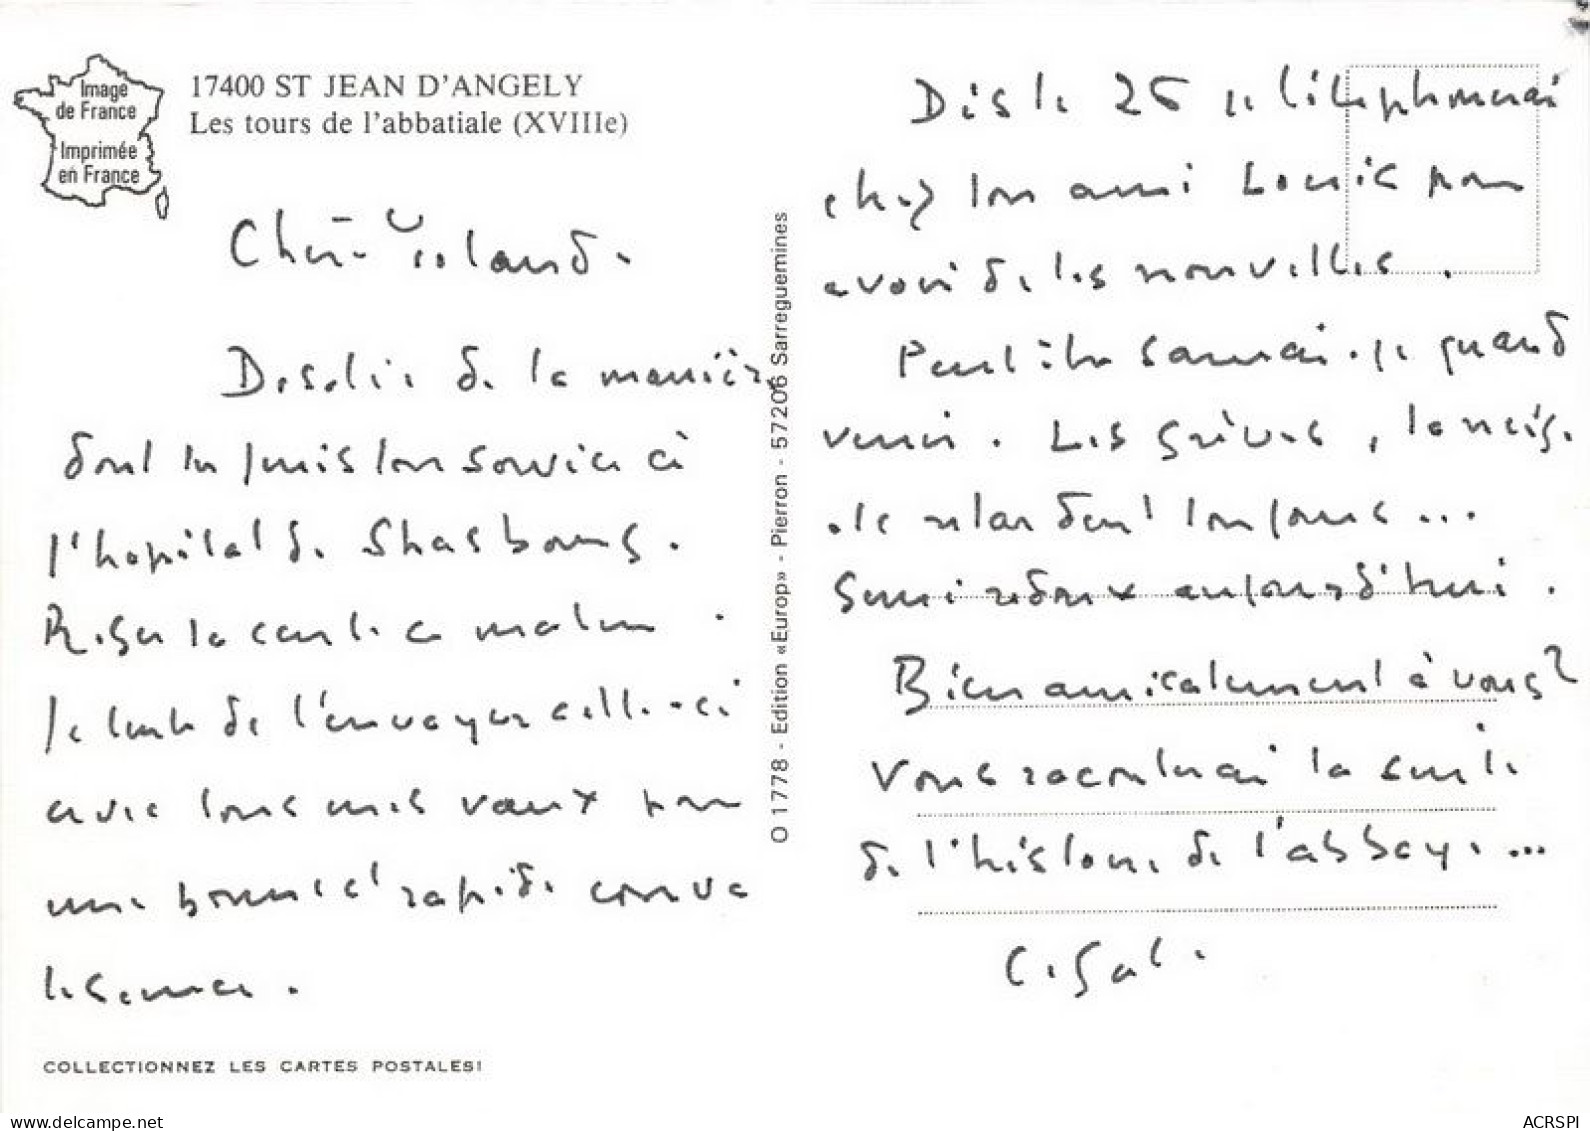 Image
de France
Imprimée
en France
17400 ST JEAN D'ANGELY
Les tours de l'abbatiale (XVIIIe)
Chère Yolande.
Desolée de la manière
dont tu puis ton service à
l'hopital de Strasbourg.
Reçu ta carte ce matin.
Je tente de t'envoyer celle-ci
avec tous mes vœux pour
une bonne et rapide conva
lescence.
COLLECTIONNEZ LES CARTES POSTALES!
O 1778 - Edition «Europ» - Pierron - 57206 Sarreguemines
Dès le 26 je téléphonerai
chez ton ami Louis pour
avoir de tes nouvelles.
Peut être saurai-je quand
venir. Les grèves, la neige
retardent toujours...
Semi redoux aujourd'hui.
Bien amicalement à vous 2
Vous raconterai la suite
de l'histoire de l'abbaye...
ACRSPI